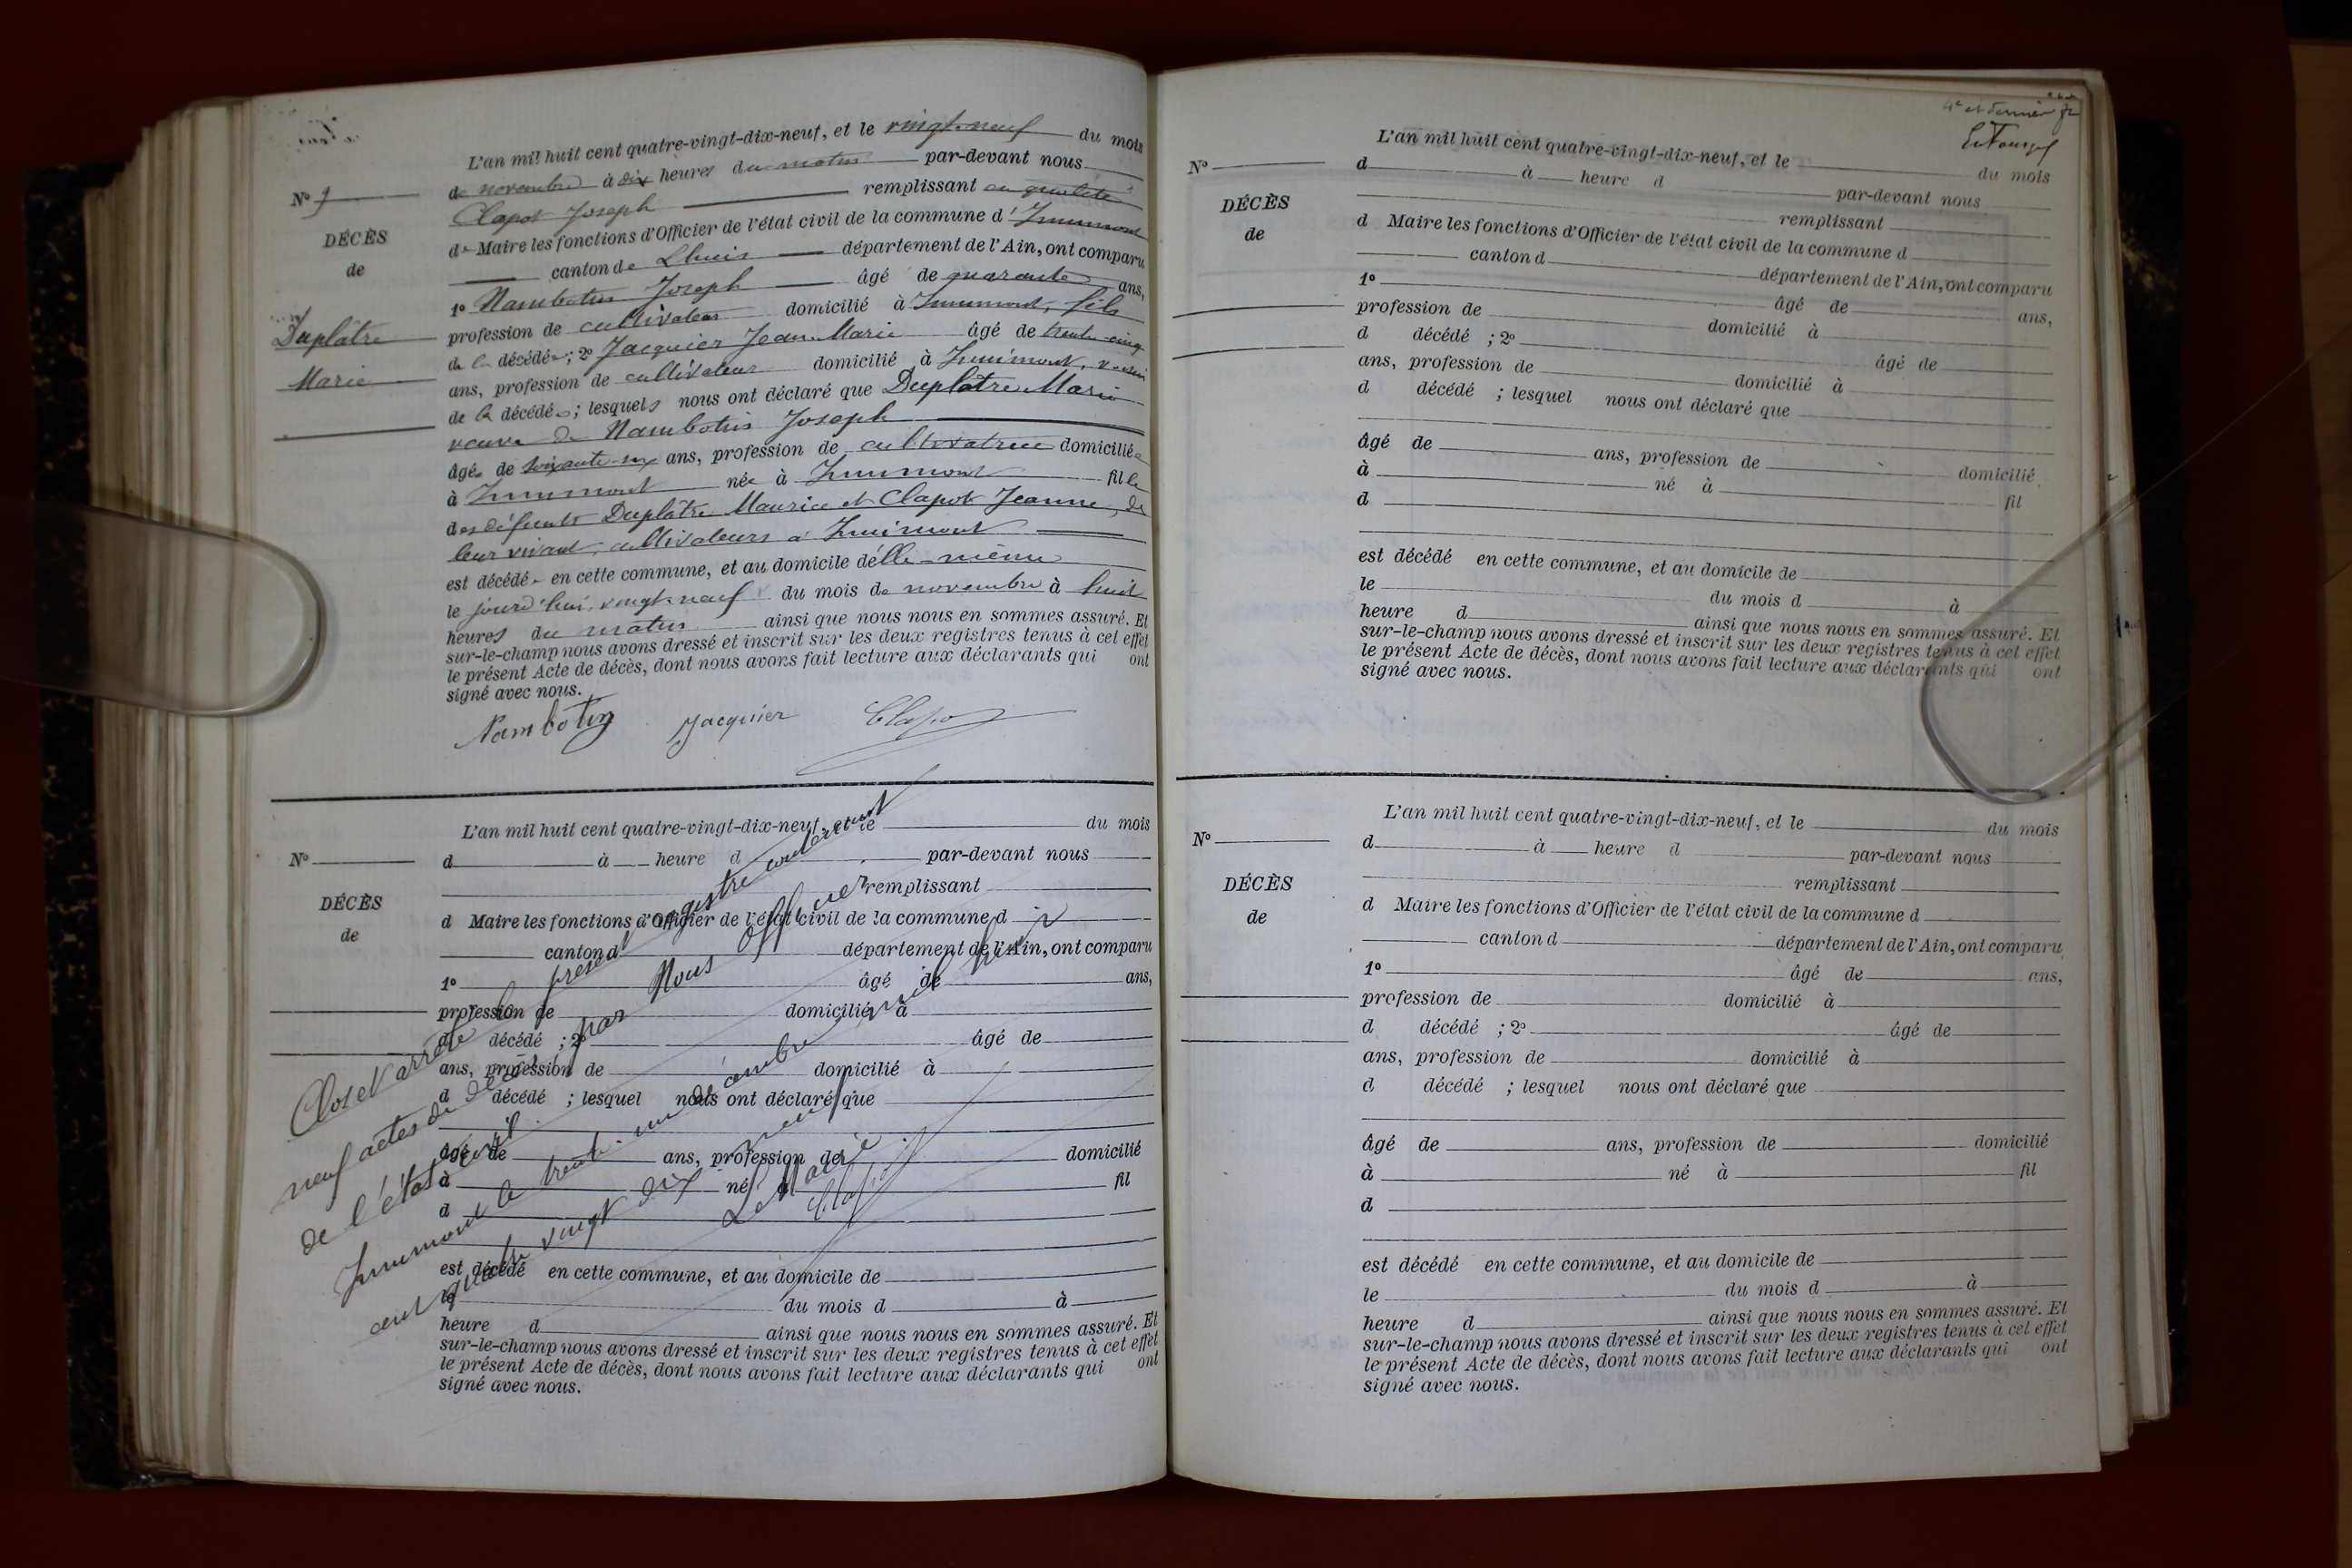 L'an mil huit cent quatre-vingt-dix-neuf, et le vingt-neuf du mois
de novembre à dix heures du matin par-devant nous
Clapot Joseph remplissant en qualité
de Maire les fonctions d'Officier de l'état civil de la commune d'Innimont
canton de Lhuis département de l'Ain, ont comparu
1º Nambotin Joseph âgé de quarante ans,
profession de cultivateur domicilié à Innimont, fils
de la décédée; 2º Jacquier Jean Marie âgé de trente-cinq
ans, profession de cultivateur domicilié à Innimont, voisin
de la décédée; lesquels nous ont déclaré que Duplâtre Marie
veuve de Nambotin Joseph
âgée de soixante-six ans, profession de cultivatrice domiciliée
à Innimont née à Innimont fille
des défunts Duplâtre Maurice et Clapot Jeanne, de
leur vivant, cultivateurs à Innimont
est décédée en cette commune, et au domicile d'elle-même
le jourd'hui, vingt-neuf du mois de novembre à huit
heures du matin ainsi que nous nous en sommes assuré. Et
sur-le-champ nous avons dressé et inscrit sur les deux registres tenus à cet effet
le présent Acte de décès, dont nous avons fait lecture aux déclarants qui ont
signé avec nous.
Nambotin Jacquier Clapot
Nº 9
DÉCÈS
de
Duplâtre
Marie
L'an mil huit cent quatre-vingt-dix-neuf, et le du mois
d à heure d par-devant nous
remplissant
d Maire les fonctions d'Officier de l'état civil de la commune d
canton d département de l'Ain, ont comparu
1º âgé de ans,
profession de domicilié à
d décédé ; 2º âgé de
ans, profession de domicilié à
d décédé ; lesquel nous ont déclaré que
âgé de ans, profession de domicilié
à né à fil
d
est décédé en cette commune, et au domicile de
le du mois d à
heure d ainsi que nous nous en sommes assuré. Et
sur-le-champ nous avons dressé et inscrit sur les deux registres tenus à cet effet
le présent Acte de décès, dont nous avons fait lecture aux déclarants qui ont
signé avec nous.
Nº
DÉCÈS
de
Clos et arrêté le présent registre contenant
neuf actes de décès par Nous Officier
de l'état civil.
Innimont le trente-un décembre mil huit
cent quatre vingt dix neuf.
Le Maire
Clapot
4e et dernier
L'an mil huit cent quatre-vingt-dix-neuf, et le du mois
d à heure d par-devant nous
remplissant
d Maire les fonctions d'Officier de l'état civil de la commune d
canton d département de l'Ain, ont comparu
1º âgé de ans,
profession de domicilié à
d décédé ; 2º âgé de
ans, profession de domicilié à
d décédé ; lesquel nous ont déclaré que
âgé de ans, profession de domicilié
à né à fil
d
est décédé en cette commune, et au domicile de
le du mois d à
heure d ainsi que nous nous en sommes assuré. Et
sur-le-champ nous avons dressé et inscrit sur les deux registres tenus à cet effet
le présent Acte de décès, dont nous avons fait lecture aux déclarants qui ont
signé avec nous.
Nº
DÉCÈS
de
L'an mil huit cent quatre-vingt-dix-neuf, et le du mois
d à heure d par-devant nous
remplissant
d Maire les fonctions d'Officier de l'état civil de la commune d
canton d département de l'Ain, ont comparu
1º âgé de ans,
profession de domicilié à
d décédé ; 2º âgé de
ans, profession de domicilié à
d décédé ; lesquel nous ont déclaré que
âgé de ans, profession de domicilié
à né à fil
d
est décédé en cette commune, et au domicile de
le du mois d à
heure d ainsi que nous nous en sommes assuré. Et
sur-le-champ nous avons dressé et inscrit sur les deux registres tenus à cet effet
le présent Acte de décès, dont nous avons fait lecture aux déclarants qui ont
signé avec nous.
Nº
DÉCÈS
de